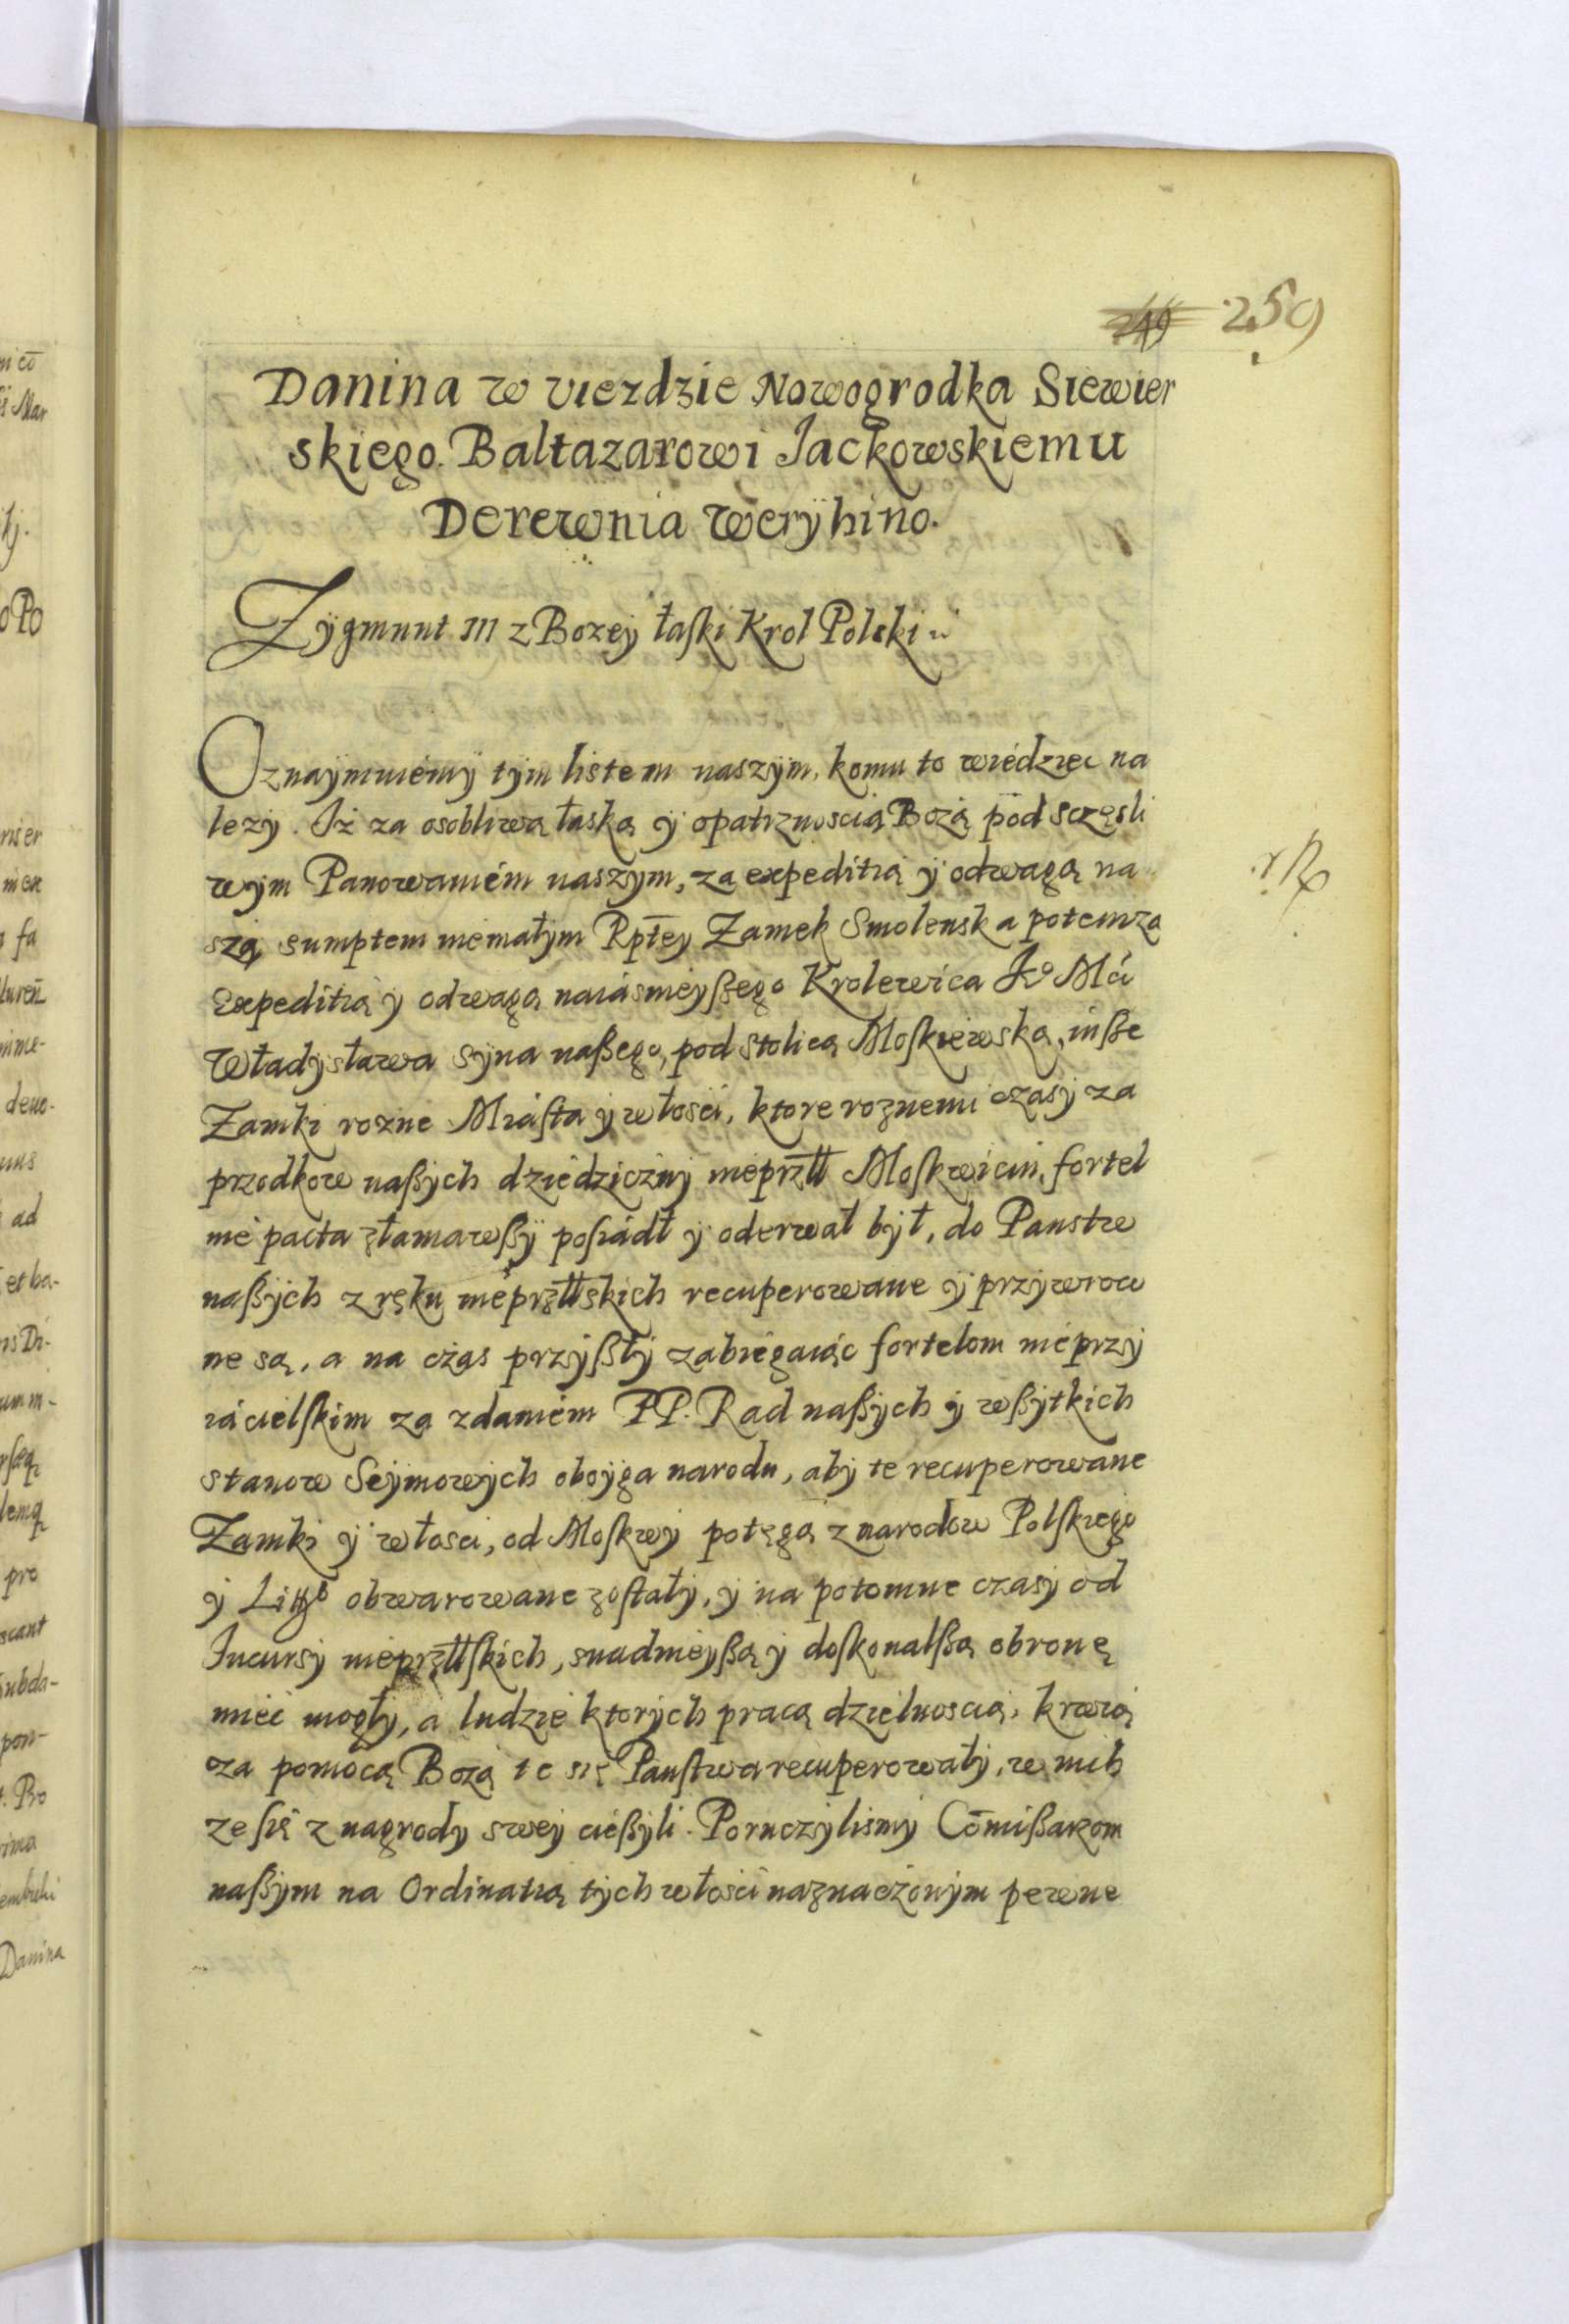 249 259
Danina w uiezdzie Nowogrodka Siewier
skiego. Baltazarowi Jackowskiemu
Derewnia Werÿhino.
Zÿgmunt III z Bozeÿ łaski Krol Polski
Oznaÿmuiemÿ tÿm listem naszÿm, komu to wiedziec na
lezÿ. Iż za osobliwą łaską ÿ opatrznoscią Bozą pod sczęsli
wÿm Panowaniem naszÿm, za expeditią ÿ odwagą na
szą sumptem niemałÿm Rptey Zamek Smolensk a potem za
expeditią ÿ odwagą naiásnieÿßego Krolewica Jº Mći
Władÿsława sÿna naßego, pod stolicą Moskiewską, inße
Zamki rozne Miásta ÿ włosci, ktore roznemi czasÿ za
przodkow naßÿch dziedzicznÿ nieprzÿll Moskwicin, fortel
nie pacta złamawßÿ posiádł ÿ oderwał bÿł, do Panstw
naßÿch z ręku nieprzÿllskich recuperowane ÿ przÿwroco
ne są, a na czas przÿßłÿ zabiegaiąc fortelom nieprzÿ
iácielskim za zdaniem PP. Rad naßÿch ÿ wßÿtkich
stanow Seÿmowÿch oboÿga narodu, abÿ te recuperowane
Zamki ÿ włosci, od Moskwÿ potęgą z narodow Polskiego
ÿ Littgo obwarowane zostałÿ, ÿ na potomne czasÿ od
Incursÿ nieprzÿllskich, snadnieÿßą ÿ doskonalßą obronę
mieć mogłÿ, a ludzie ktorÿch pracą dzielnoscią, krwią
za pomocą Bozą te się Panstwa recuperowałÿ, w nich
ze się z nagrodÿ sweÿ cießÿli. Poruczÿlismÿ Cōmißarzom
naßÿm na Ordinatią tÿch włosci naznaczonÿm pewne